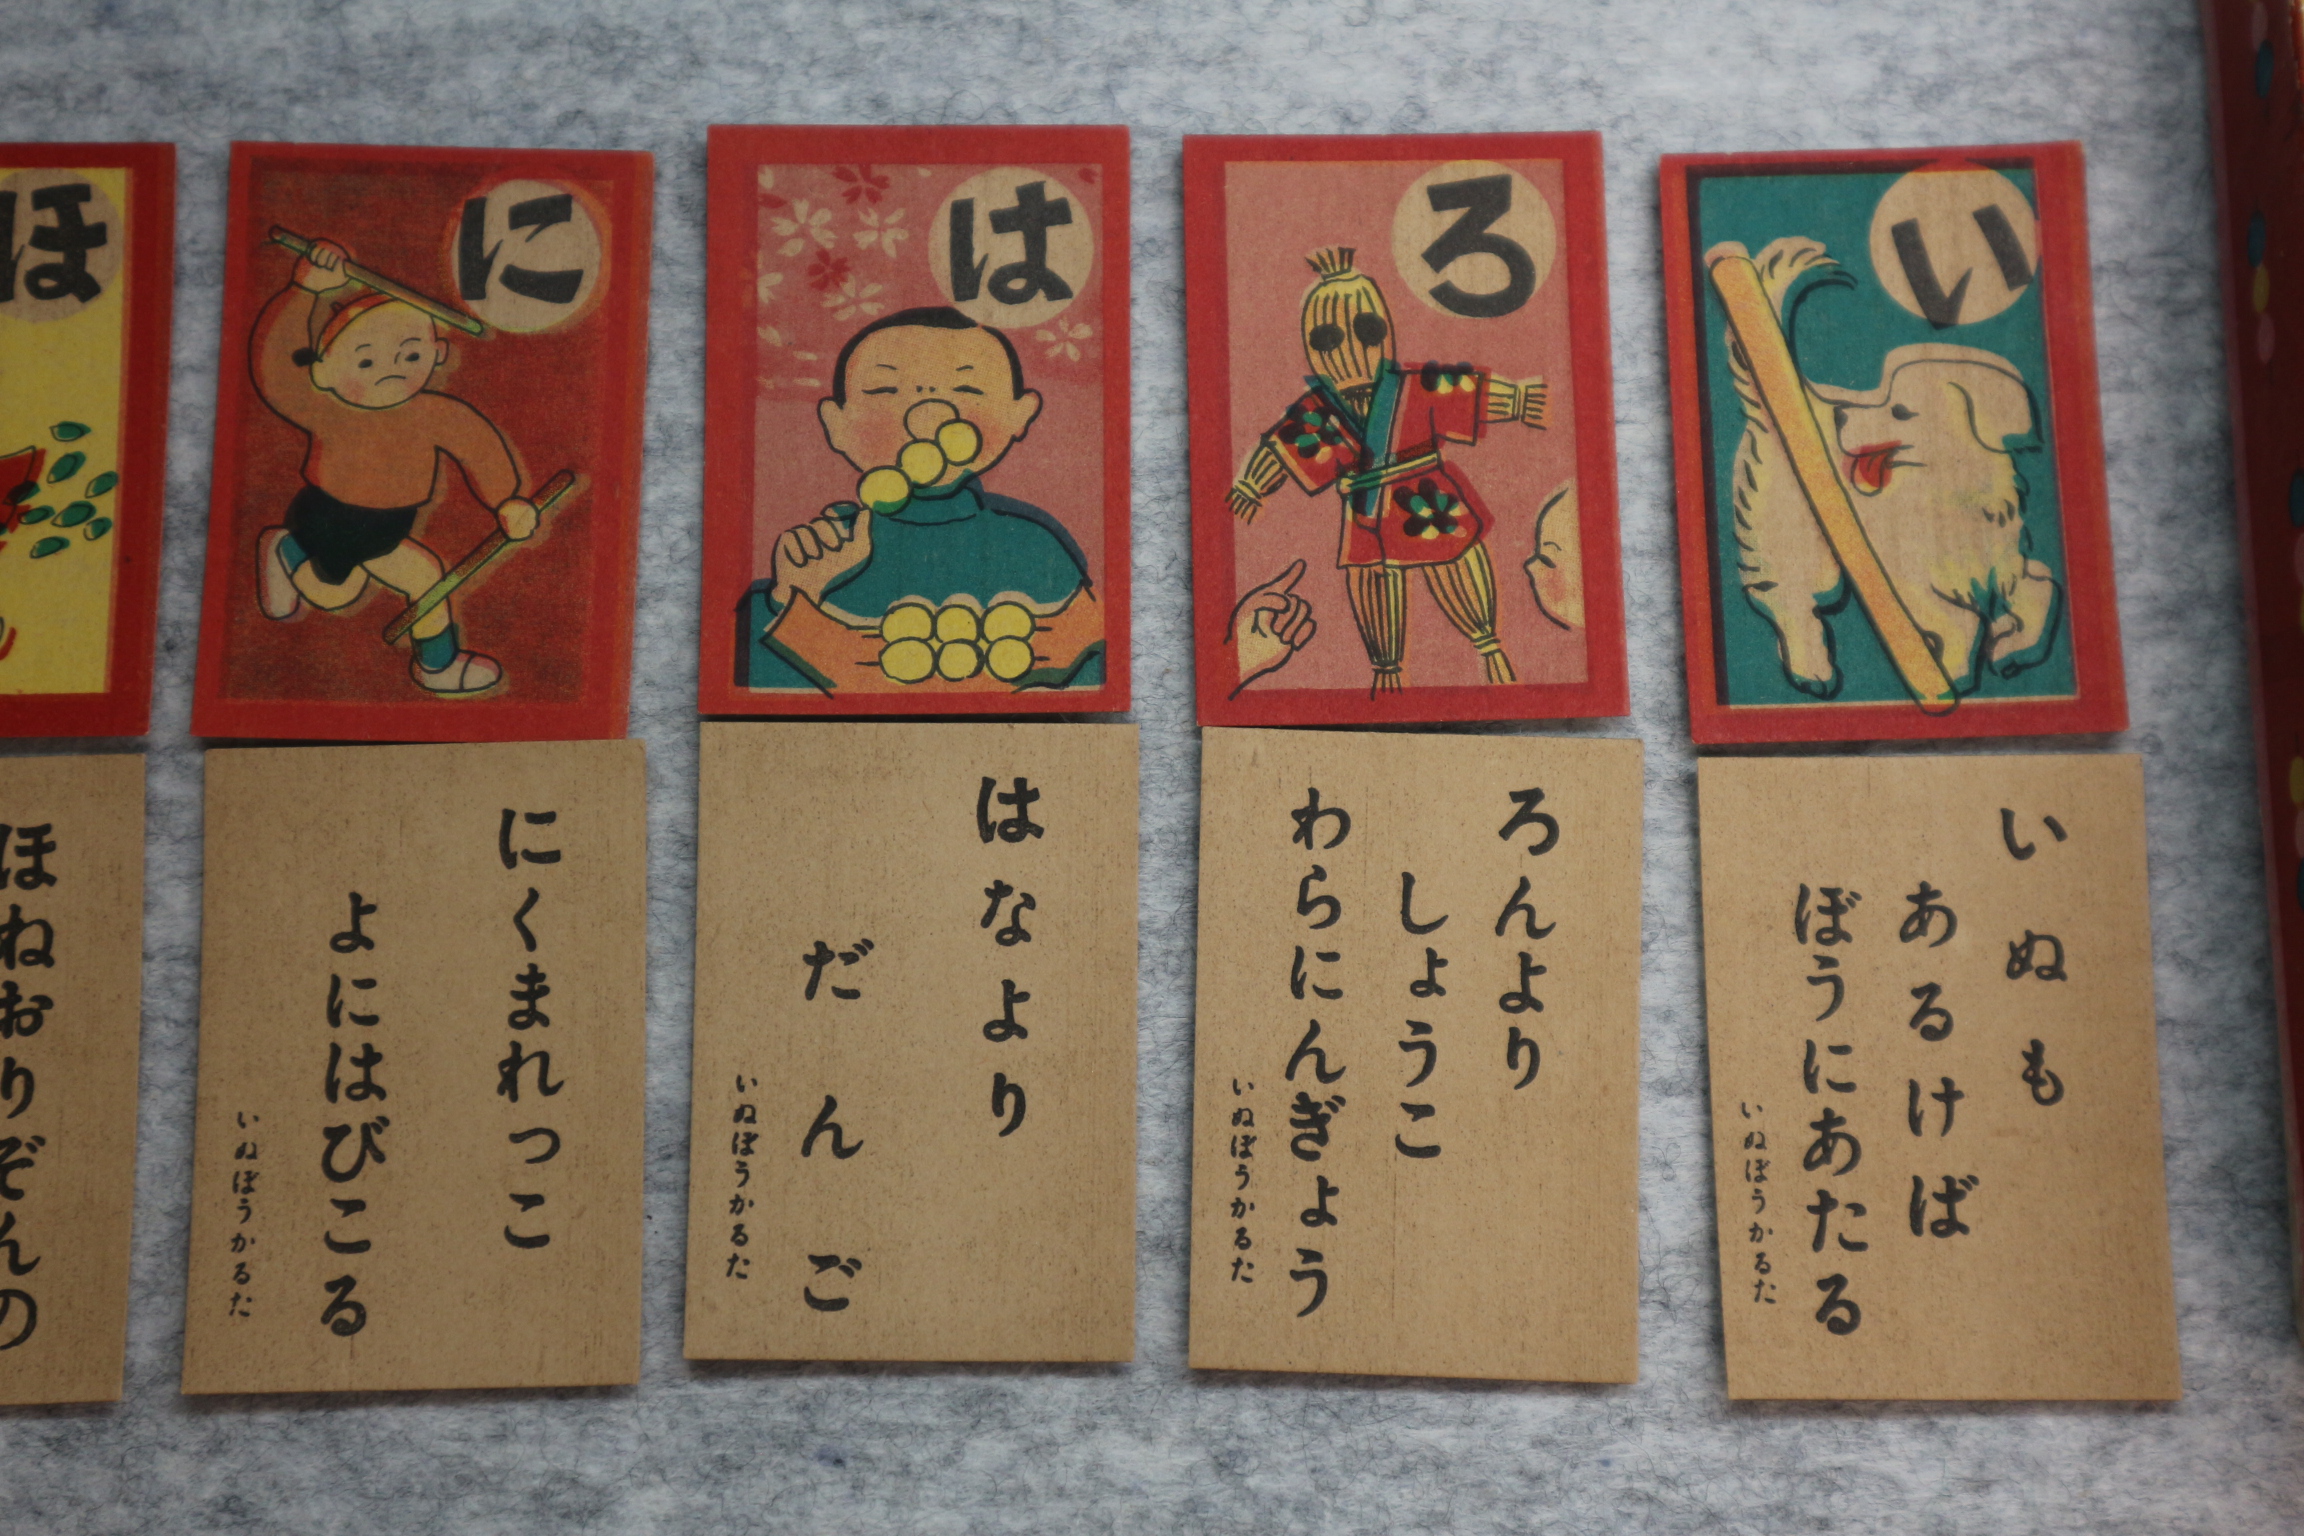 い
ろ
は
に
ほ
いぬも
あるけば
ぼうにあたる
いぬぼうかるた
ろんより
しょうこ
わらにんぎょう
いぬぼうかるた
はなより
だんご
いぬぼうかるた
にくまれっこ
よにはびこる
いぬぼうかるた
ほねおりぞんの